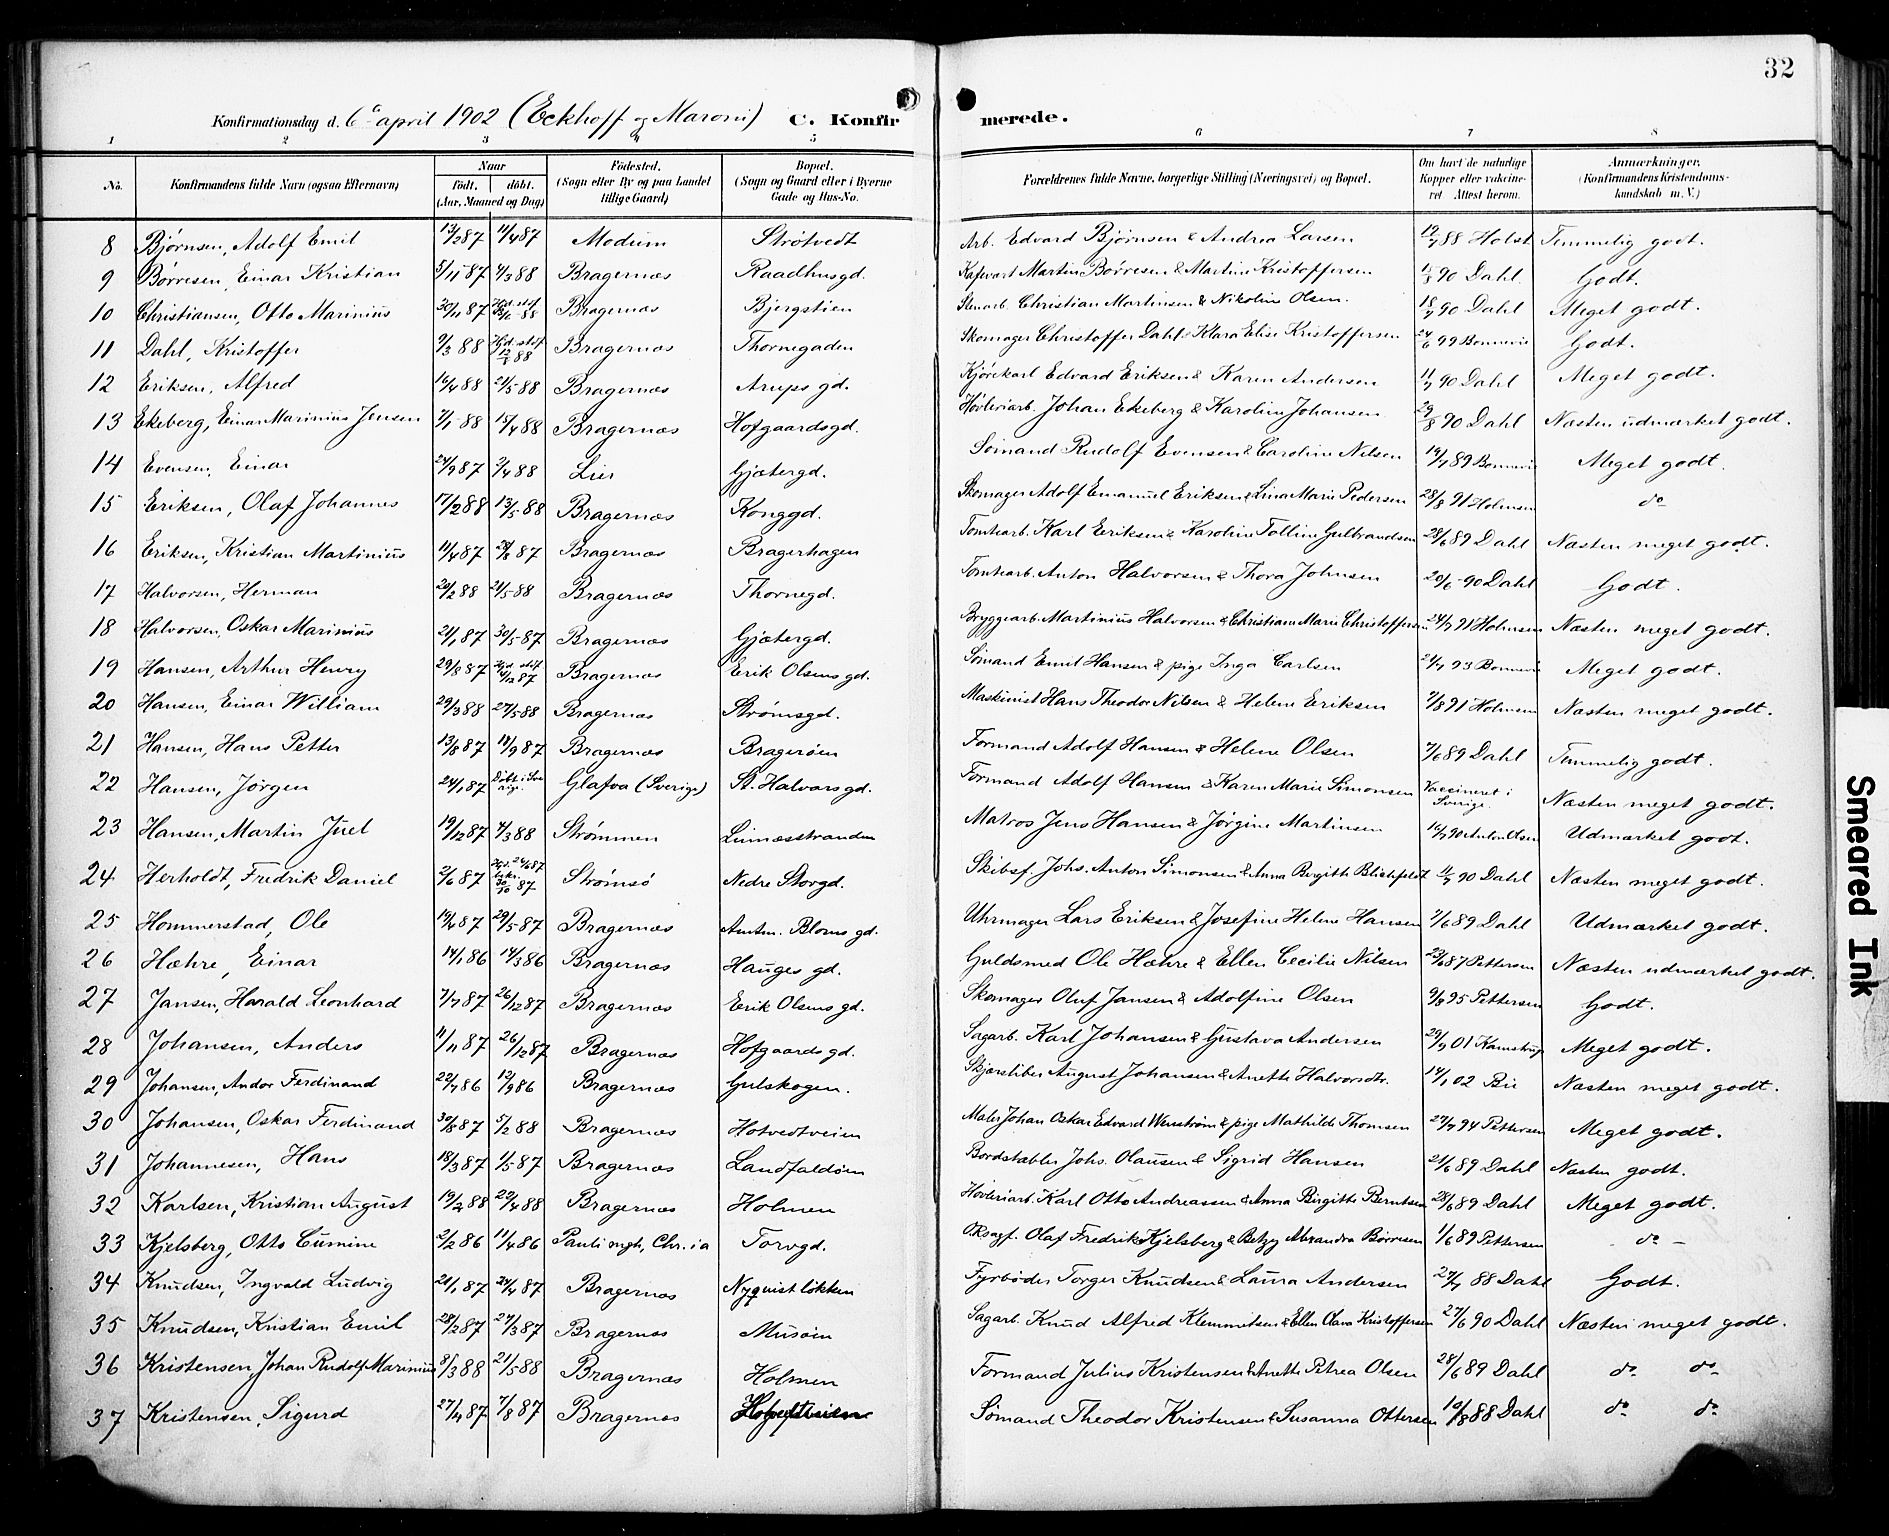 32
Konfirmationsdag d. 6e april 1902 (Eckhoff og Maroni) C. Konfirmerede.
1 2 3 4 5 6 7 8
No. Konfirmandens fulde Navn (ogsaa Efternavn) Naar födt. döbt. (Aar, Maaned og Dag) Födested. (Sogn eller By og paa Landet tillige Gaard) Bopæl. (Sogn og Gaard eller i Byerne Gade og Hus-No. Forældrenes fulde Navne, borgerlige Stilling (Næringsvei) og Bopæl. Om havt de naturlige Kopper eller vaccineret. Attest herom. Anmærkninger. (Konfirmandens Kristendomskundskab m. V.)
8 Bjørnsen, Adolf Emil 13/2 87 11/4 87 Modum Strøtvedt Arb. Edvard Bjørnsen & Andrea Larsen 88 Holst Temmelig godt.
9 Børresen, Einar Kristian 5/11 87 4/3 88 Bragernæs Raadhusgd. Kafevært Martin Børresen & Martine Kristoffersen 90 Dahl Godt.
10 Christiansen, Otto Marinius 30/11 87 88 Bragernæs Bjergstien Stenarb. Christian Martinsen & Nikoline Olsen. 90 Dahl Meget godt.
11 Dahl, Kristoffer 9/3 88 88 Bragernæs Thornegaden Skomager Christoffer Dahl & Klara Elise Kristoffersen 24/6 99 Bonnevie Godt.
12 Eriksen, Alfred 16/4 88 21/5 88 Bragernæs Arups gd. Kjørekarl Edvard Eriksen & Karen Andersen 90 Dahl Meget godt.
13 Ekeberg, Einar Marinius Jensen 7/1 88 15/4 88 Bragernæs Hofgaardsgd. Høvleriarb. Johan Ekeberg & Karoline Johansen 29/8 90 Dahl Næsten udmærket godt.
14 Evensen, Einar 24/9 87 2/4 88 Lier Gjætergd. Sømand Rudolf Evensen & Caroline Nilsen 89 Bonnevie Meget godt.
15 Eriksen, Olaf Johannes 17/2 88 13/5 88 Bragernæs Konggd. Skomager Adolf Emanuel Eriksen & Lina Marie Pedersen 28/8 91 Holmsen do
16 Eriksen, Kristian Martinius 11/4 87 28/8 87 Bragernæs Bragerhagen Tomtearb. Karl Eriksen & Karoline Tolline Gulbrandsen 28/6 89 Dahl Næsten meget godt.
17 Halvorsen, Herman 88 21/5 88 Bragernæs Thornegd. Tomtearb. Anton Halvorsen & Thora Johnsen 20/6 90 Dahl Godt.
18 Halvorsen, Oskar Marinius 21/1 87 30/5 87 Bragernæs Gjætergd. Bryggearb. Martinius Halvorsen & Christiane Marie Christoffersen 24/7 91 Holmsen Næsten meget godt.
19 Hansen, Arthur Henry 29/8 87 87 Bragernæs Erik Olsens gd. Sømand Emil Hansen & pige Inga Carlsen 93 Bonnevie Meget godt.
20 Hansen, Einar William 29/3 88 27/5 88 Bragernæs Strømsgd. Maskinist Hans Theodor Nilsen & Helene Eriksen 7/8 91 Holmsen Næsten meget godt.
21 Hansen, Hans Petter 13/8 87 18/9 87 Bragernæs Bragerøen Formand Adolf Hansen & Helene Olsen 7/6 89 Dahl Temmelig godt.
22 Hansen, Jørgen 24/1 87 Døbt i Sverige. Glafva (Sverige) St. Halvars gd. Formand Adolf Hansen & Karen Marie Simonsen Vaccineret i Sverige. Næsten meget godt.
23 Hansen, Martin Juel 19/12 87 4/3 88 Strømmen Linnæsstranden Matros Jens Hansen & Jørgine Martinsen 90 Anton Olsen Udmærket godt.
24 Herholdt, Fredrik Daniel 2/6 87 87 Strømsø Nedre Storgd. Skibsf. Johs. Anton Simonsen & Anna Birgitte 90 Dahl Næsten meget godt.
25 Hommerstad, Ole 19/4 87 29/5 87 Bragernæs Amtm. Bloms gd. Uhrmager Lars Eriksen & Josefine Helene Hansen 7/6 89 Dahl Udmærket godt.
26 Hæhre, Einar 14/1 86 14/3 86 Bragernæs Hauges gd. Guldsmed Ole Hæhre & Ellen Cecilie Nilsen 87 Pettersen Næsten udmærket godt.
27 Jansen, Harald Leonhard 7/7 87 26/12 87 Bragernæs Erik Olsens gd. Skomager Oluf Jansen & Adolfine Olsen 95 Pettersen Godt.
28 Johansen, Anders 11/11 87 26/12 87 Bragernæs Hofgaards gd. Sagarb. Karl Johansen & Gustava Andersen 01 Kamstrup Meget godt.
29 Johansen, Andor Ferdinand 22/7 86 12/9 86 Bragernæs Gulskogen. Skjærsliber August Johansen & Anette Halvorsdtr. 14/1 02 Bie Næsten meget godt.
30 Johansen, Oskar Ferdinand 30/8 87 5/2 88 Bragernæs Hotvedtveien Maler Johan Oskar Edvard Wenstrøm & pige Mathilde Thomsen 94 Pettersen Meget godt.
31 Johannesen, Hans 18/3 87 1/5 87 Bragernæs Landfaldøen Bordstabler Johs. Olausen & Sigrid Hansen 21/6 89 Dahl Næsten godt.
32 Karlsen, Kristian August 19/2 88 29/4 88 Bragernæs Holmen Høvleriarb. Karl Otto Andreassen & Anna Birgitte Berntsen 28/6 89 Dahl Meget godt.
33 Kjelsberg, Otto Cumine 2/2 86 11/4 86 Pauli mgh., Chr.ia Torvgd. O.R.sagf. Olaf Fredrik Kjelsberg & Betzy Alexandra Børresen 1/6 89 Pettersen do –
34 Knudsen, Ingvald Ludvig 21/1 87 24/4 87 Bragernæs Nyquistløkken Fyrbøder Torger Knudsen & Laura Andersen 88 Dahl Godt.
35 Knudsen, Kristian Emil 28/2 87 27/3 87 Bragernæs Musøen Sagarb. Knud Alfred Klemmetsen & Ellen Olava Kristoffersen 27/6 90 Dahl Næsten meget godt.
36 Kristensen, Johan Rudolf Marinius 8/3 88 21/5 88 Bragernæs Holmen Formand Julius Kristensen & Anette Petrea Olsen 28/6 89 Dahl do do
37 Kristensen, Sigurd 27/4 87 7/8 87 Bragernæs Hotvedtveien Sømand Theodor Kristensen & Susanna Ottersen 10/8 88 Dahl do do
Smeared Ink